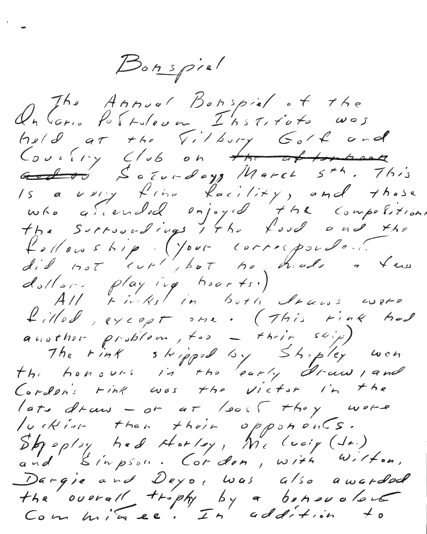 Bonspiel
The Annual Bonspiel of the
Ontario Petroleum Institute was
held at the Tilbury Golf and
Country Club on the afternoon
Saturday, March 5th. This
is a very fine facility, and those
who attended enjoyed the competition,
the surroundings, the food and the
fellowship. (Your correspondent
did not curl, but he made a few
dollars playing hearts.)
All rinks in both draws were
filled, except one. (This rink had
another problem, too - their skip)
The rink skipped by Shipley won
the honours in the early draw, and
Corden's rink was the victor in the
late draw - or at least they were
luckier than their opponents.
Shipley had Horley, (Jr.)
and Simpson. Corden, with Wilton,
Dargie and Deyo, was also awarded
the overall trophy by a benevolent
Committee. In addition to